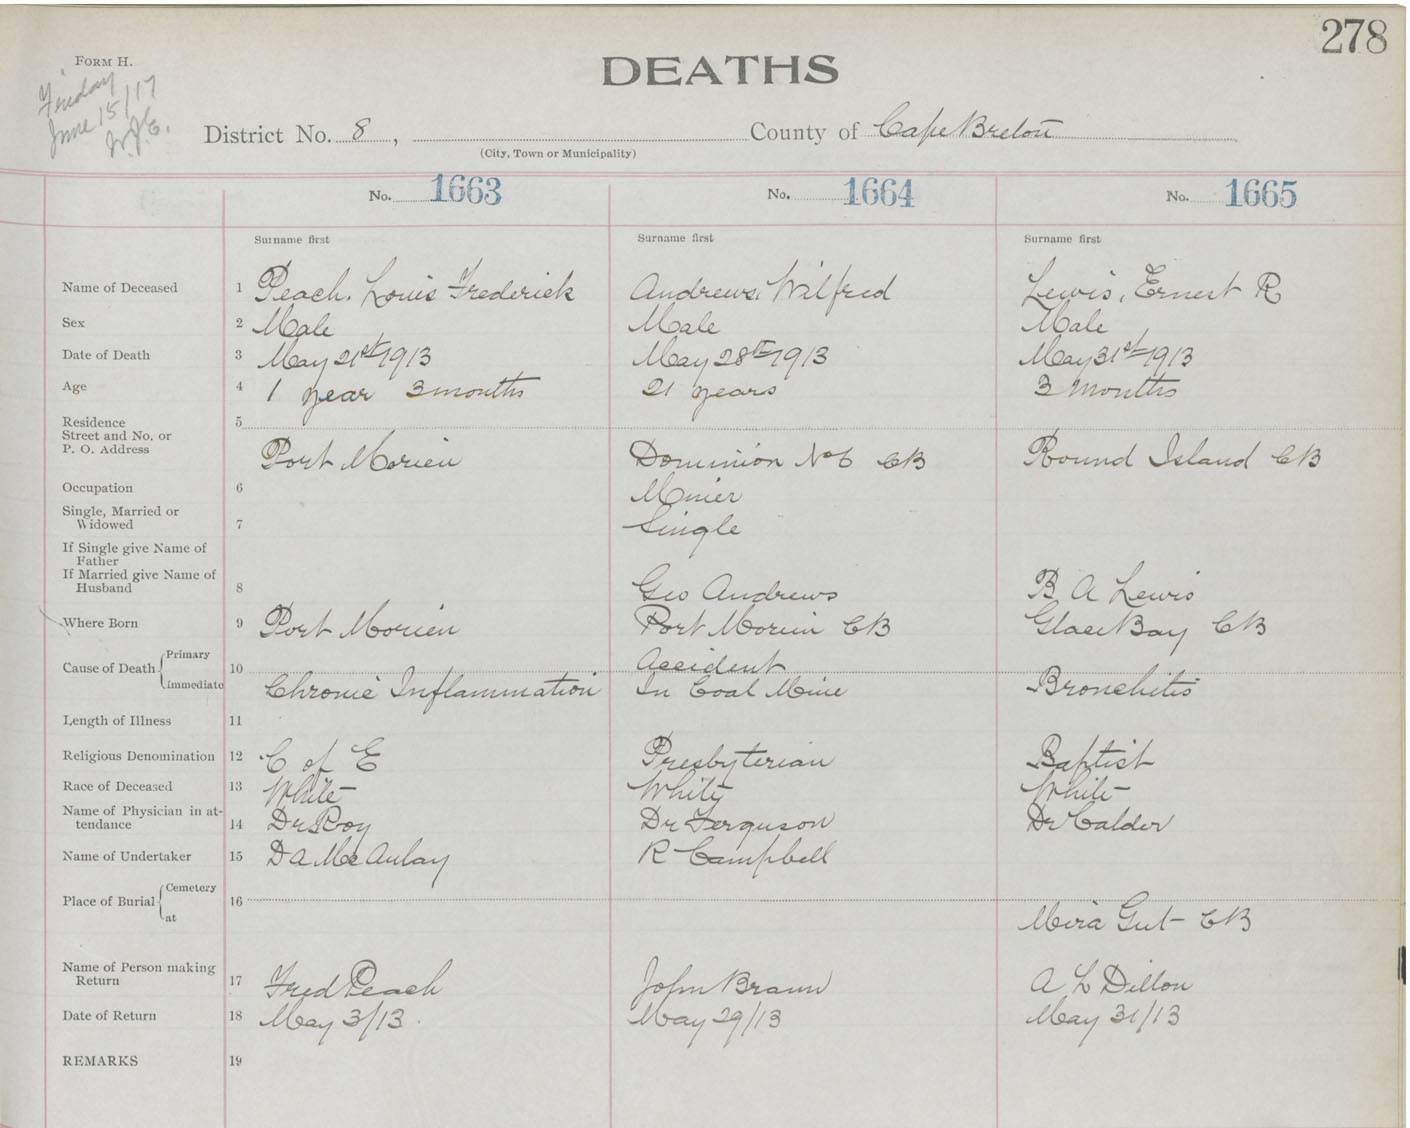 278
FORM H.
DEATHS
Friday
June 15/17
W.J.C.
District No. 8, County of Cape Breton
(City, Town or Municipality)
No. 1663 No. 1664 No. 1665
Surname first Surname first Surname first
Name of Deceased 1 Peach. Louis Frederick Andrews, Wilfred Lewis, Ernest R
Sex 2 Male Male Male
Date of Death 3 May 21st 1913 May 28th 1913 May 31st 1913
Age 4 1 year 3 months 21 years 3 months
Residence 5
Street and No. or
P. O. Address Port Morien Dominion No 6 CB Round Island CB
Occupation 6 Minier
Single, Married or
Widowed 7 Single
If Single give Name of
Father
If Married give Name of
Husband 8 Geo Andrews B A Lewis
Where Born 9 Port Morien Port Morien CB Glace Bay CB
Cause of Death Primary 10 Accident
Immediate Chronic Inflammation In Coal Mine Bronchitis
Length of Illness 11
Religious Denomination 12 C of E Presbyterian Baptist
Race of Deceased 13 White White White
Name of Physician in at-
tendance 14 Dr Roy Dr Ferguson Dr Calder
Name of Undertaker 15 D A McAulay R Campbell
Place of Burial Cemetery 16
at Mira Gut CB
Name of Person making
Return 17 Fred Peach John Brann A L Dillon
Date of Return 18 May 3/13 May 29/13 May 31/13
REMARKS 19